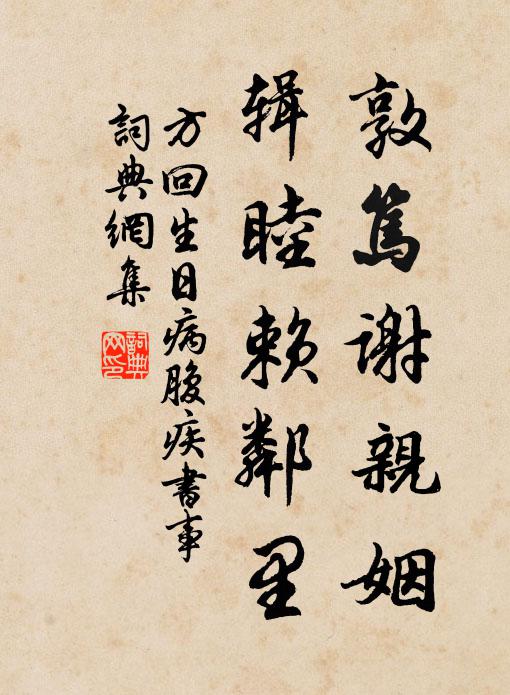 敦篤谢親姻
辑睦赖鄰里
方回生日病腹疾書事
詞典網集
詞典
网印